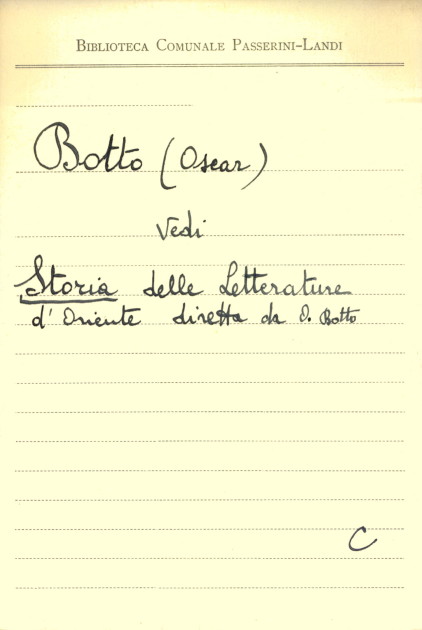 BIBLIOTECA COMUNALE PASSERINI-LANDI
Botto (Oscar)
Vedi
Storia delle Letterature
d'Oriente diretta da O. Botto
C